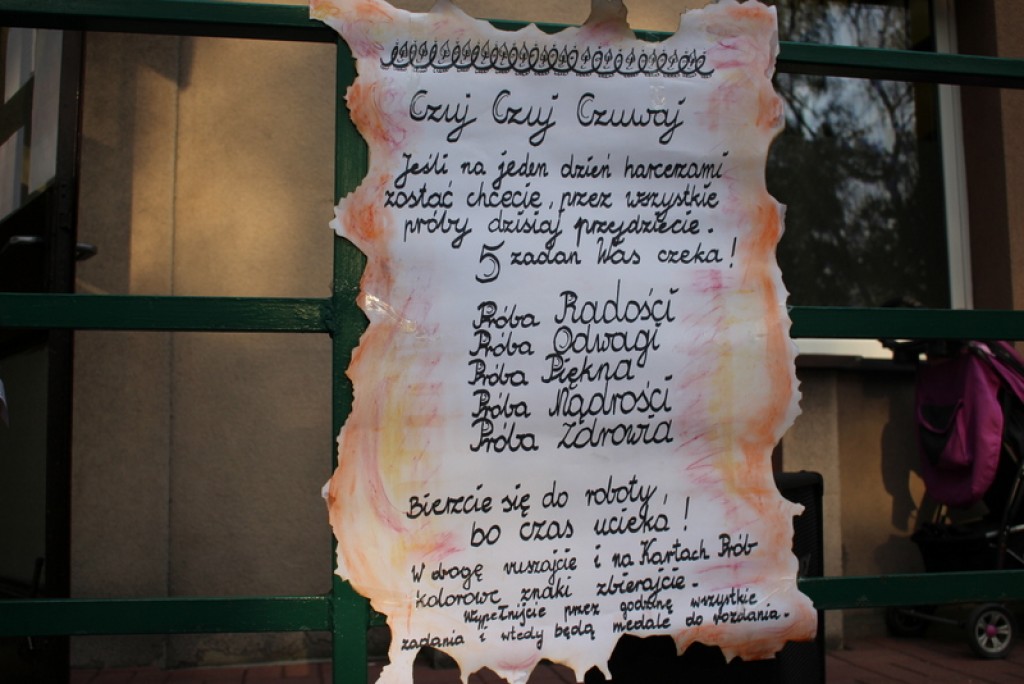 Czuj Czuj Czuwaj
Jeśli na jeden dzień harcerzami
zostać chcecie, przez wszystkie
próby dzisiaj przejdziecie.
5 zadań Was czeka!
Próba Radości
Próba Odwagi
Próba Piękna
Próba Mądrości
Próba Zdrowia
Bierzcie się do roboty,
bo czas ucieka!
W drogę ruszajcie i na Kartach Prób
kolorowe znaki zbierajcie.
Wypełnijcie przez godzinę wszystkie
zadania i wtedy będą medale do rozdania.